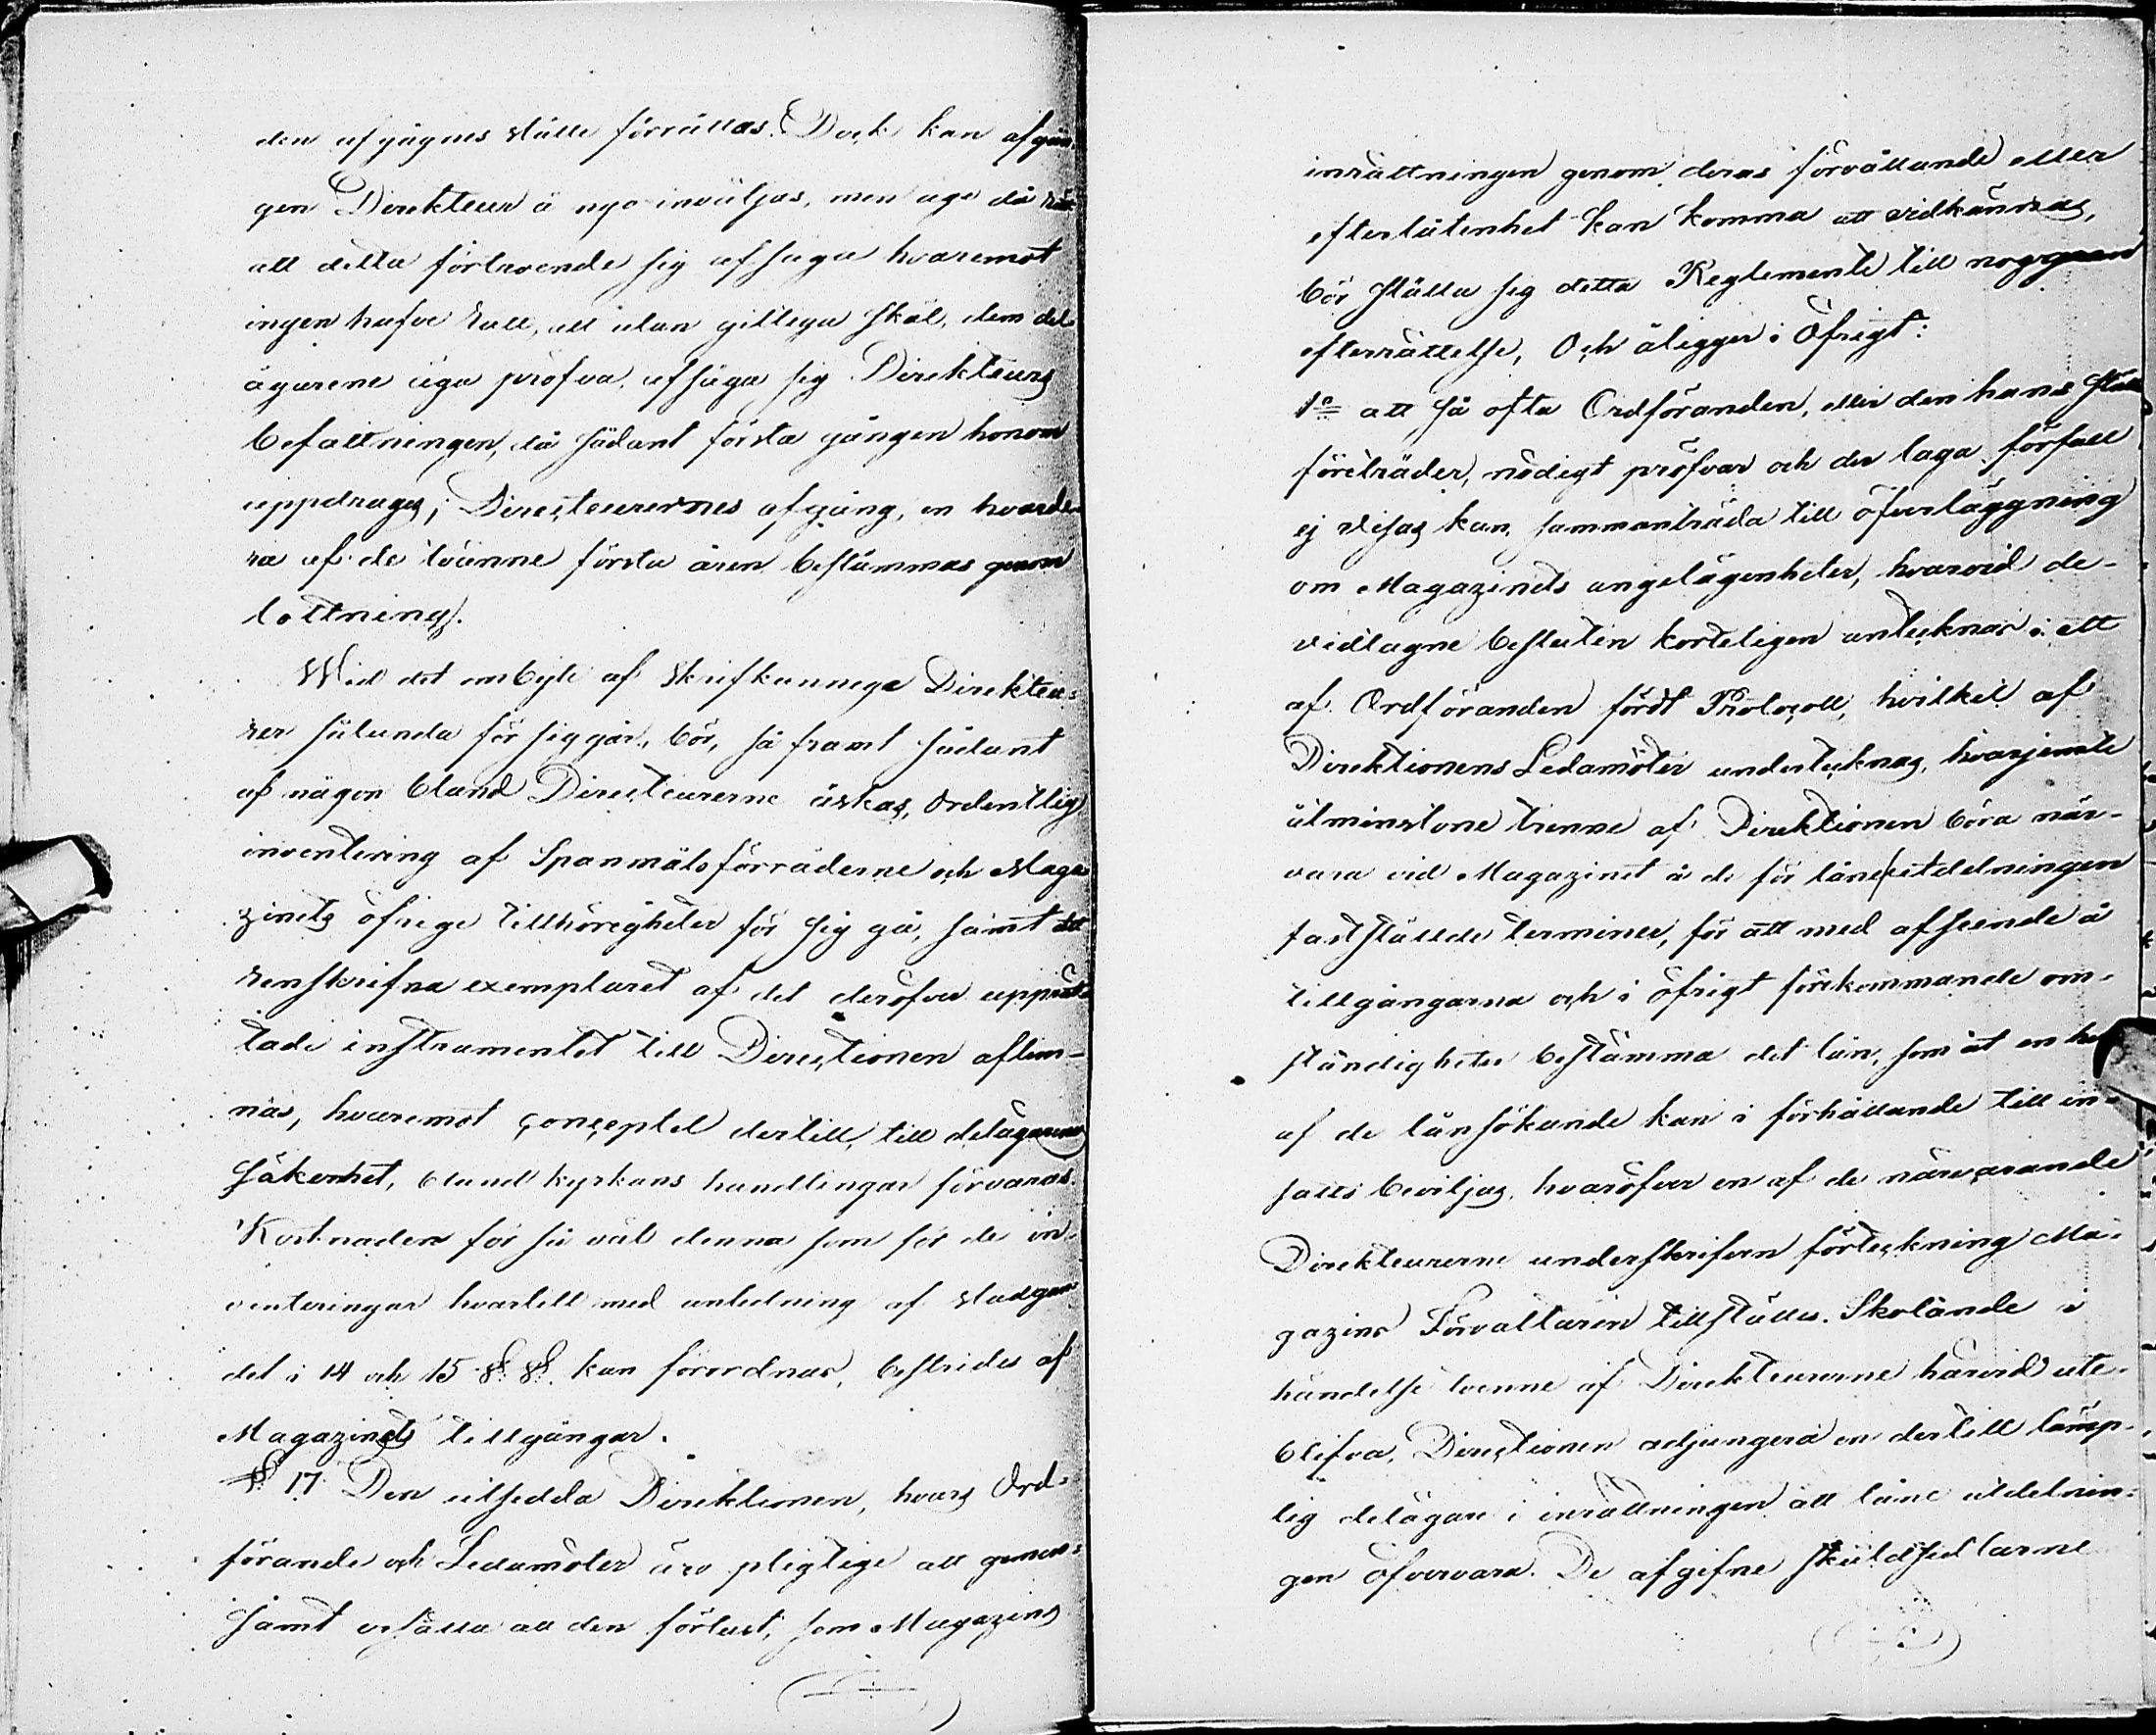 den afgågnes ställe förrättas. Dock kan afgån-
gen Direkteur å nyo inväljas, men äge då rät
att detta förtroende sig afsäga hvaremot
ingen hafve rätt, att utan giltiga skäl, dem del-
ägarene äga pröfva, afsäga sig Direkteurs
befattningen, då sådant första gången honom
uppdrages; Directeurernes afgång, en hvarde-
ra af de tvänne första åren bestämmas genom
lottning.
Wid det ombyte af skrifkunnige Direkteu-
rer sålunda för sig går, bör, så framt sådant
af någon bland Directeurerne äskas, ordentlig
inventering af Spanmålsförråderne och Maga
zinets öfrige tillhörigheter för sig gå, samt ett
renskrifna exemplaret af det deröfver upprät-
tade instrumentet till Directionen aflem-
nas, hvaremot Conceptet dertill, till delägarnes
säkerhet, bland kyrkans handlingar förvaras.
Kostnaden för så väl denna som för de in-
venteringar hvartill med anledning af stadgan-
det i 14 och 15 §.§. kan förordnas, bestrides af
Magazinets tillgångar.
§ 17 Den utsedda Direktionen, hvars Ord-
förande och Ledamöter äro pligtige att gemen-
samt ersätta all den förlust, som Magazins
inrättningen genom deras förvållande eller
efterlåtenhet kan komma att vidkännas,
bör ställa sig detta Reglemente till noggrann
efterrättelse, Och åligger i Öfrigt:
1º att så ofta Ordföranden, eller den hans ställe
företräder, nödigt pröfvar och der laga förfall
ej visas kan, sammanträda till öfverläggning
om Magazinets angelägenheter, hvarvid de-
vidtagne besluten korteligen antecknas i ett
af Ordföranden fördt Protocoll, hvilket af
Direktionens Ledamöter undertecknas, hvarjemte
åtminstone trenne af Direktionen böra när-
vara vid Magazinet å de för låneutdelningen
fastställde terminer, för att med afseende å
tillgångarna och i öfrigt förekommande om-
ständigheter bestämma det lån, som åt en hvar
af de lånsökande kan i förhållande till in-
satts beviljas, hvaröfver en af de närvarande
Direkteurerne underskrifven förteckning Ma-
gazins Förvaltaren tillställes. Skolande i
händelse tvenne af Direkteurerne härvid ute-
blifva, Directionen adjungera en dertill lämp-
lig delägare i inrättningen att låne utdelnin-
gen öfvervara. De afgifne skuldsedlarne